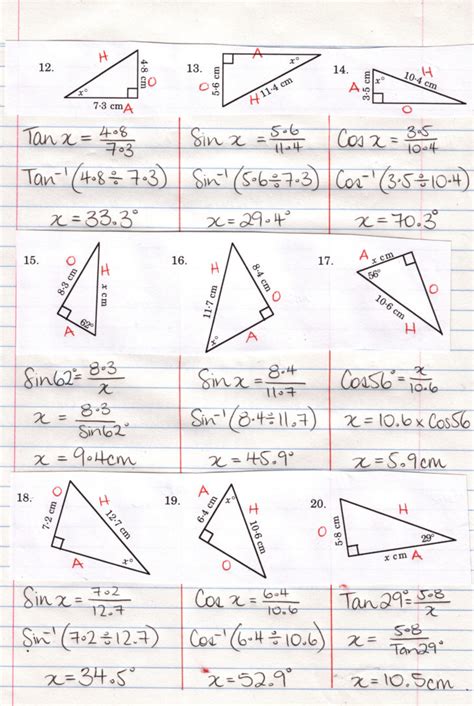 12.
H
4·8 cm
O
x°
7·3 cm
A
13.
A
x°
5·6 cm
O
H
11·4 cm
14.
A
3·5 cm
x°
H
10·4 cm
O
Tan x = 4·8/7·3
Tan⁻¹(4·8÷7·3)
x = 33.3°
Sin x = 5·6/11·4
Sin⁻¹(5·6÷7·3)
x = 29.4°
Cos x = 3·5/10·4
Cos⁻¹(3·5÷10·4)
x = 70.3°
15.
O
8·3 cm
H
x cm
62°
A
16.
H
11·7 cm
8·4 cm
O
x°
A
17.
A
x cm
56°
O
10·6 cm
H
Sin62° = 8·3/x
x = 8·3/Sin62°
x = 9.4cm
Sin x = 8·4/11.7
Sin⁻¹(8·4÷11.7)
x = 45.9°
Cos56° = x/10.6
x = 10.6 x Cos56
x = 5.9cm
18.
O
7·2 cm
H
12·7 cm
A
x°
19.
A
6·4 cm
x°
H
10·6 cm
O
20.
H
O
5·8 cm
29°
x cm
A
Sin x = 7.2/12.7
Sin⁻¹(7.2÷12.7)
x = 34.5°
Cos x = 6.4/10.6
Cos⁻¹(6.4÷10.6)
x = 52.9°
Tan29° = 5.8/x
x = 5.8/Tan29°
x = 10.5cm